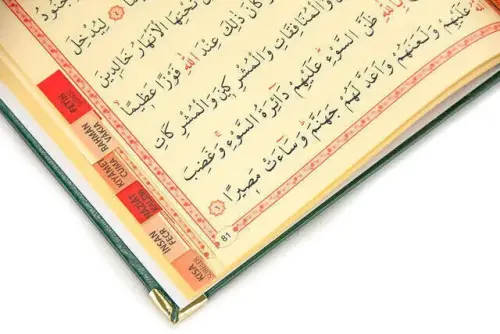 لِيُدْخِلَ
تَحْتِهَا الْاَنْهَارُ خَالِدِينَ
كَانَ ذٰلِكَ عِنْدَ اللّٰهِ فَوْزًا عَظِيمًا
وَالْمُنَافِقَاتِ وَالْمُشْرِكِينَ وَالْمُشْرِكَاتِ
ظَنَّ السَّوْءِ عَلَيْهِمْ دَٓائِرَةُ السَّوْءِ وَغَضِبَ
عَلَيْهِمْ وَلَعَنَهُمْ وَاَعَدَّ لَهُمْ جَهَنَّمَ وَسَٓاءَتْ مَصِيرًا
٦
81
FETİH
RAHMAN
VAKIA
KIYAMET
CUMA
İNSAN
FECR
KISA
SURELER